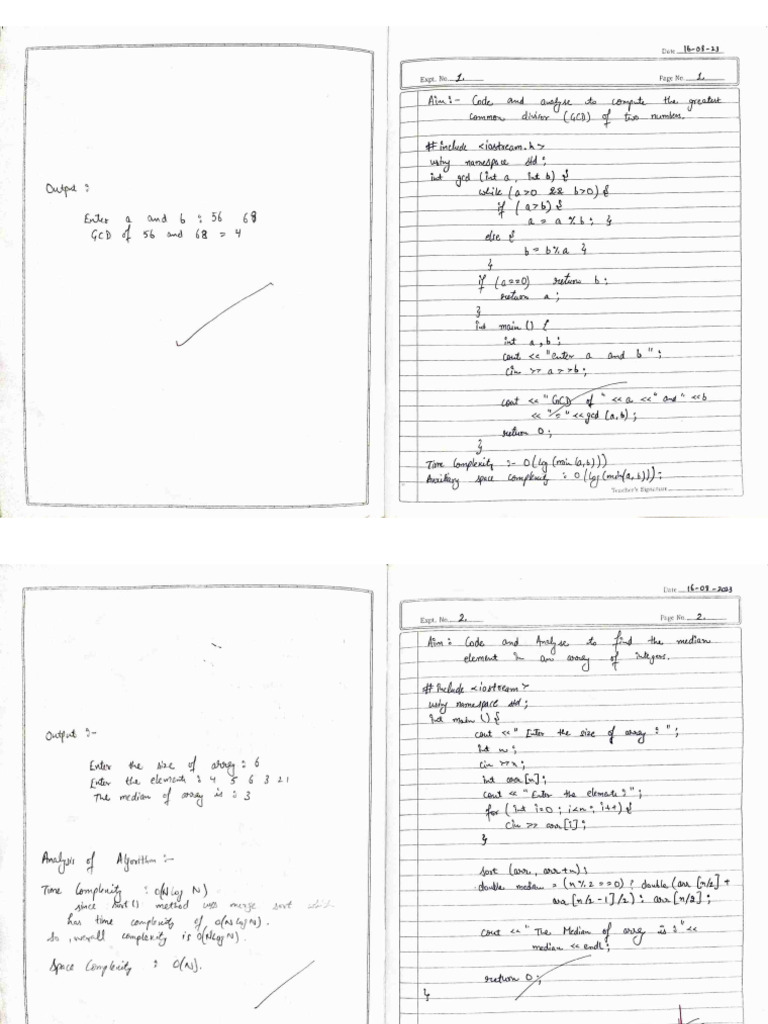 Output :
Enter a and b : 56 68
GCD of 56 and 68 = 4
Date 16-08-23
Expt. No. 1.
Page No. 1.
Aim :- Code and analyse to compute the greatest
common divisor (GCD) of two numbers.
# include <iostream.h>
using namespace std ;
int gcd (int a, int b) {
while (a>0 && b>0) {
if (a>b) {
a = a % b ; }
else {
b = b % a }
}
if (a==0) return b ;
return a ;
}
int main () {
int a, b ;
cout << "enter a and b " ;
cin >> a >> b ;
cout << "GCD of " << a << " and " << b
<< "is" << gcd (a, b) ;
return 0 ;
}
Time Complexity :- O(log(min(a,b)))
Auxiliary space complexity : O(log(min(a,b))) ;
Teacher's Signature
Output :-
Enter the size of array : 6
Enter the elements : 4 5 6 3 2 1
The median of array is : 3
Analysis of Algorithm :-
Time Complexity : O(N log N)
since sort() method uses merge sort which
has time complexity of O(N log N).
So, overall complexity is O(N log N).
Space Complexity : O(N).
Date 16-08-2023
Expt. No. 2.
Page No. 2.
Aim : Code and Analyse to find the median
element in an array of integers.
# include <iostream>
using namespace std ;
int main () {
cout << " Enter the size of array : " ;
int n ;
cin >> n ;
int arr [n] ;
cout << " Enter the elements : " ;
for (int i=0 ; i<n ; i++) {
cin >> arr[i] ;
}
sort (arr, arr+n) ;
double median = (n % 2 == 0) ? double (arr [n/2] +
arr [n/2 -1] /2) : arr [n/2] ;
cout << "The Median of array is : " <<
median << endl ;
return 0 ;
}